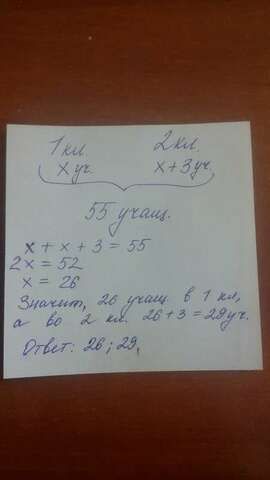 1 кл. 2 кл.
x уч. x + 3 уч.
55 учащ.
x + x + 3 = 55
2x = 52
x = 26
Значит, 26 учащ. в 1 кл,
а во 2 кл. 26 + 3 = 29 уч.
Ответ: 26; 29.